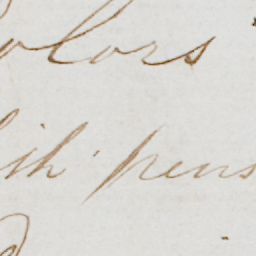 olors
ish pens